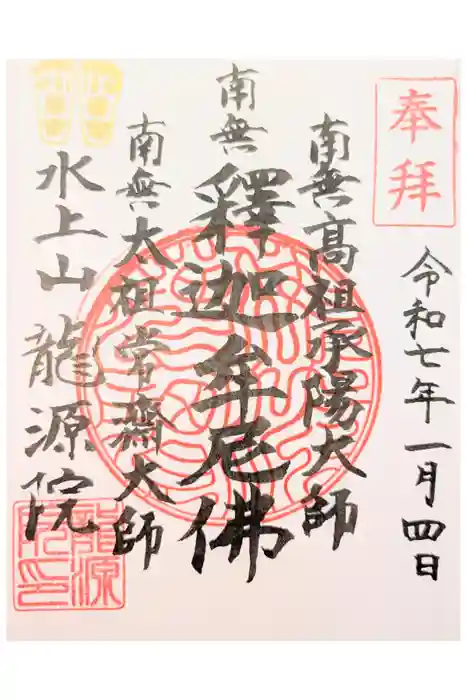 奉拝
令和七年一月四日
南無高祖承陽大師
南無釋迦牟尼佛
南無太祖常齋大師
水上山龍源院
龍源院印